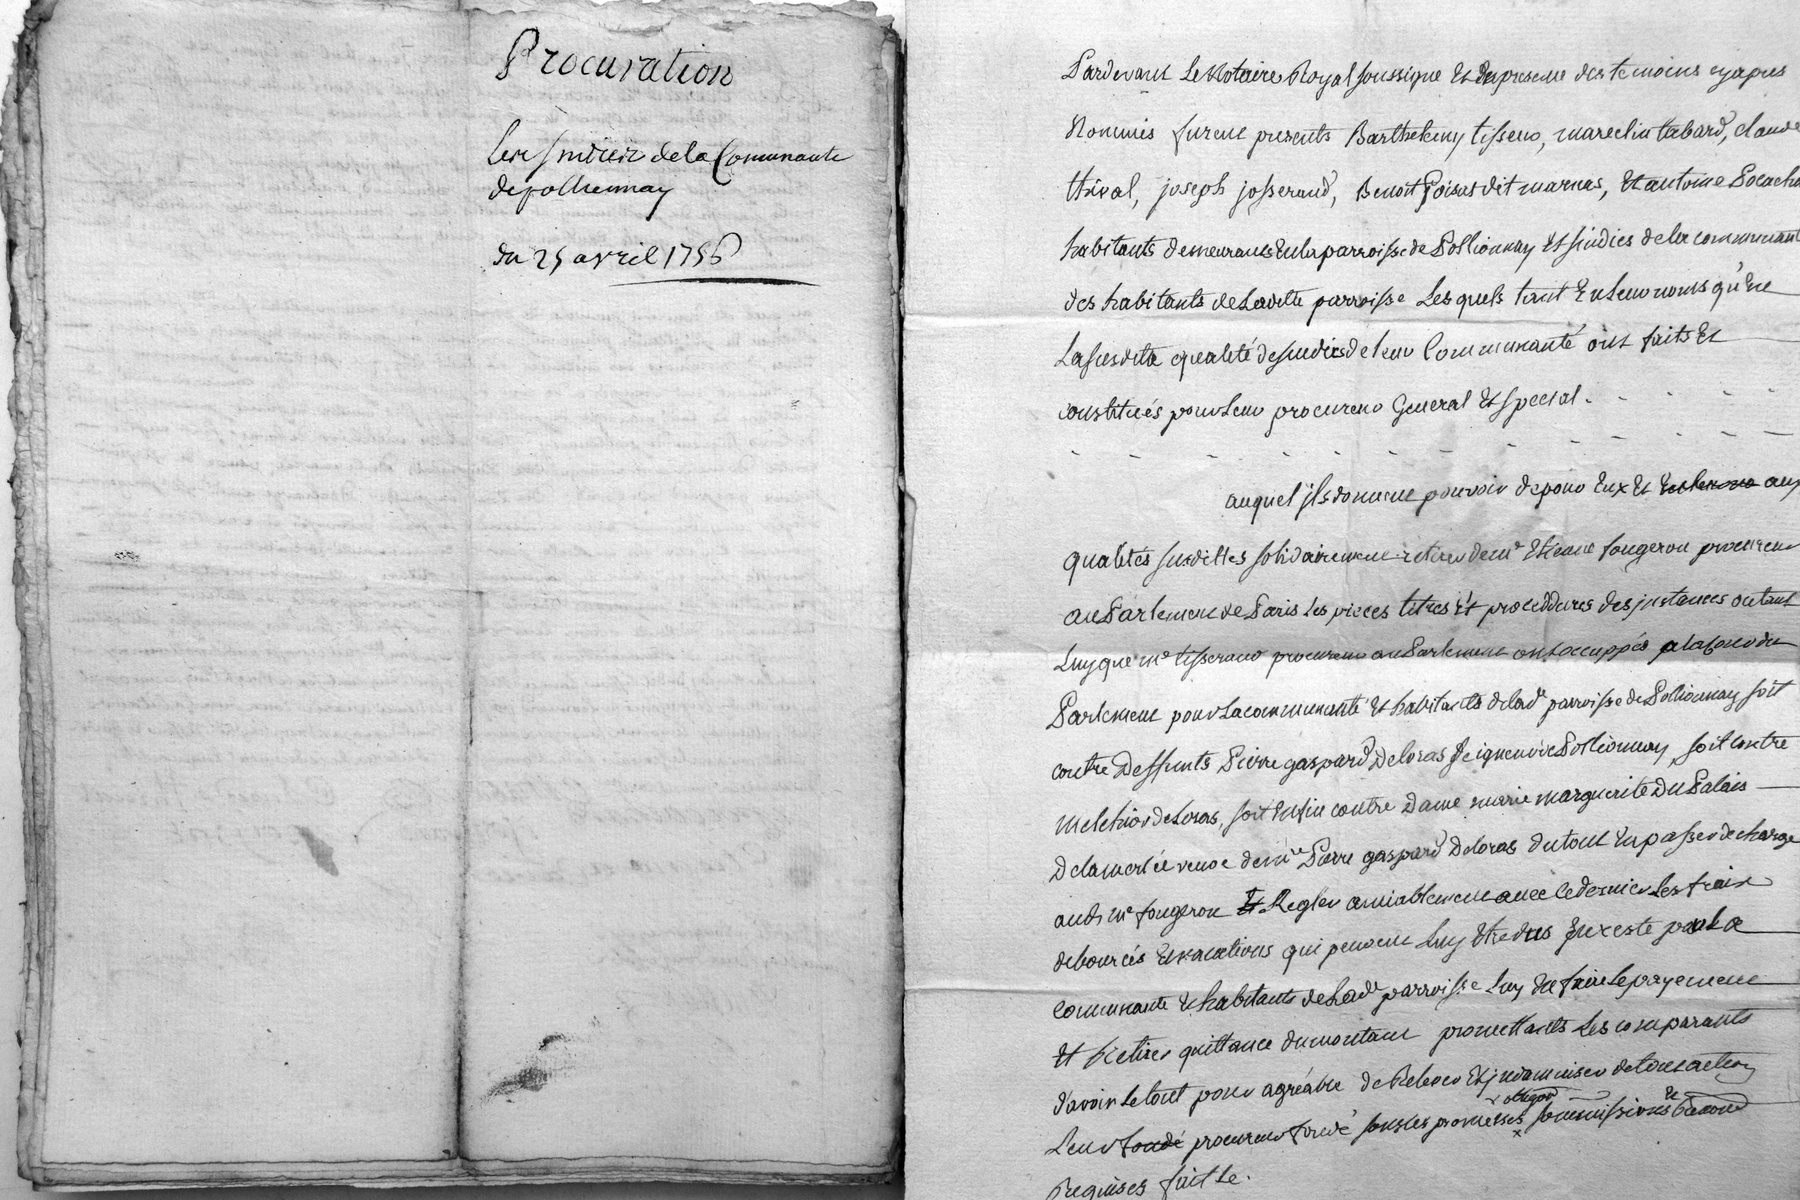 Procuration
Les sindicz de la Communauté
de pollionnay
du 25 avril 1756
Pardevant Le Notaire Royal soussigne Et En presence des temoins cy apres
Nommés furent presents Barthelemy tisseur, mareclin tabard, claude
thival, joseph josserand, Benoit Poisas dit marnas, Et antoine
habitants demeurants En la parroisse de Pollionnay Et sindics de la communauté
des habitants de Laditte parroisse Lesquels tant En Leur noms qu'En
La susditte qualité de sindics de leur Communauté ont faits Et
constitués pour Leur procureur General Et special.
auquel ils donnent pouvoir de pour Eux Et aux
qualités susdittes solidairement retirer de me Etienne fougeron procureur
au Parlement de Paris Les pieces titres Et proceddures des instances ou tant
Luy que me tisserand procureur au Parlement ont occuppés a la Cour du
Parlement pour La communauté Et habitants de lade parroisse de Pollionnay soit
contre Deffunts Pierre gaspard Deloras seigneur de Pollionnay, soit contre
melchior de Loras, soit Enfin contre Dame marie marguerite Du Palais
De la merlée veuve de mre Pierre gaspard Deloras du tout En passer decharge
audt me fougeron Et Regler amiablement avec ce dernier Les fraix
debourcés Et vacations qui peuvent Luy Etre dus En reste par La
communauté Et habitants de Lade parroisse Luy En faire Le payement
Et Retirer quittance du montant promettants Les comparants
d'avoir Le tout pour agréable de Relever Et indamniser de tout action
Leur fondé procureur fondé sous les promesses obligaon soummissions Et
Requises fait Le.